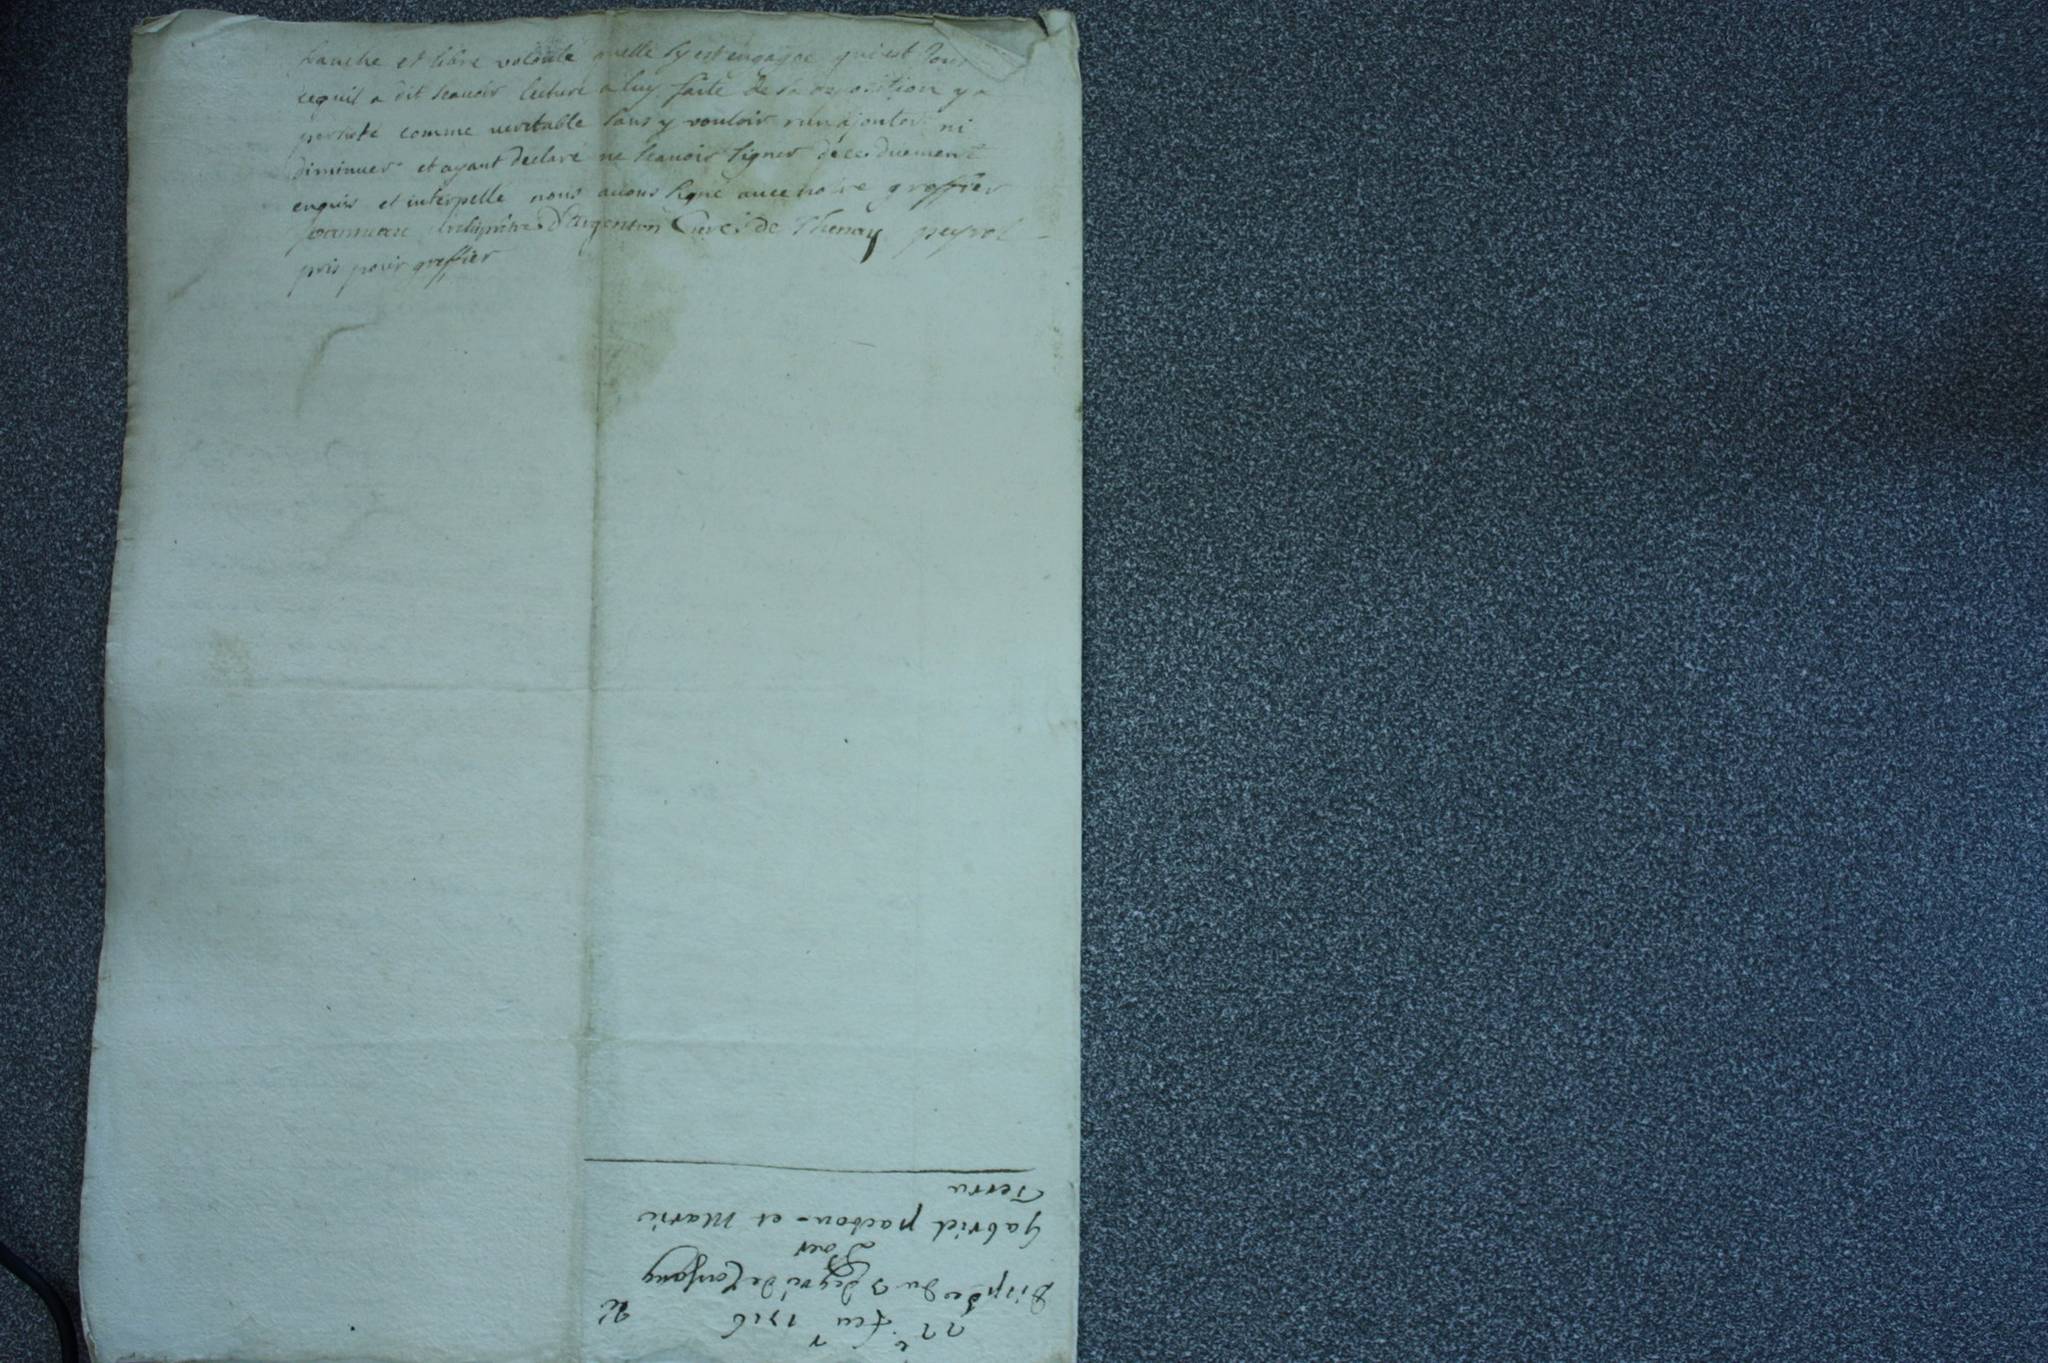 franche et libre volonté quelle sy est engagée qui est tout
ce quil a dit scauoir lecture a luy faite de sa deposition y a
persisté comme ueritable sans y vouloir rien ajouter ni
diminuer et ayant declaré ne scauoir signer de ce duement
enquis et interpellé nous auons signé auec notre greffier
Archiprêtre D'Argenton Curé de Thenay peyrot
pris pour greffier
22e feu r 1716
Dispse du 3 degré de Consang
Pour
Gabriel pactou et Marie
Terru